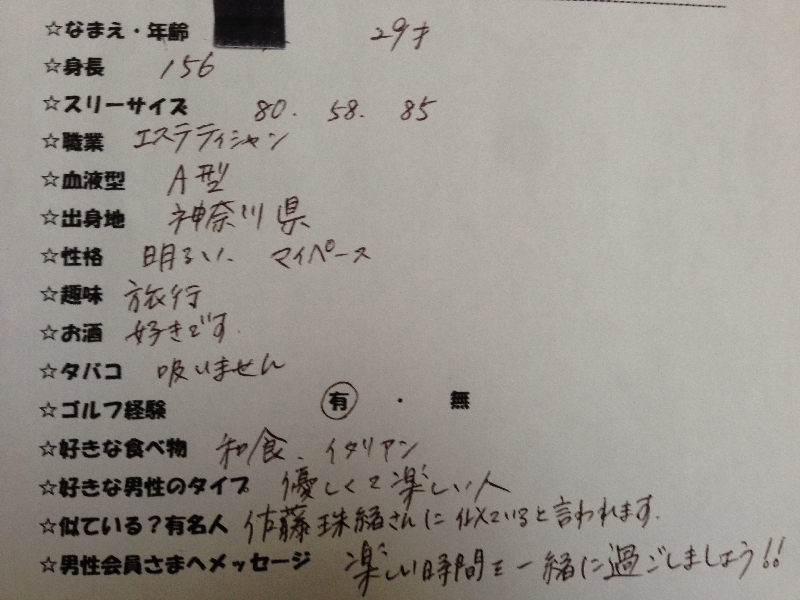 ☆なまえ・年齢 29才
☆身長 156
☆スリーサイズ 80. 58. 85
☆職業 エステティシャン
☆血液型 A型
☆出身地 神奈川県
☆性格 明るい、マイペース
☆趣味 旅行
☆お酒 好きです.
☆タバコ 吸いません
☆ゴルフ経験 有 ・ 無
☆好きな食べ物 和食、イタリアン
☆好きな男性のタイプ 優しくて楽しい人
☆似ている?有名人 佐藤珠緒さんに似ていると言われます.
☆男性会員さまへメッセージ 楽しい時間を一緒に過ごしましょう!!